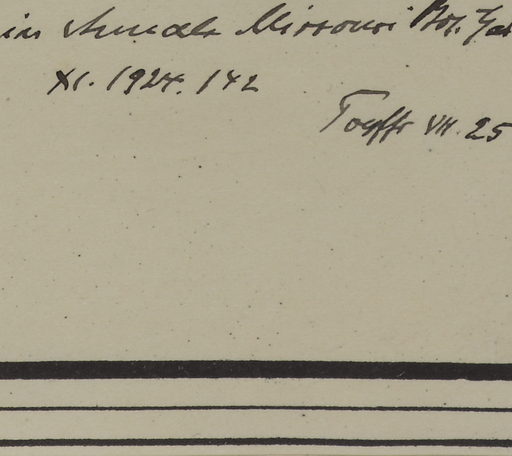 in Annals Missouri Bot. Gar
XI. 1924. 142
Toepffr VII. 25